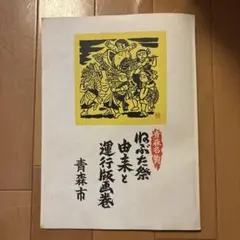 青森名物
ねぶた祭
由来と
運行版画巻
青森市